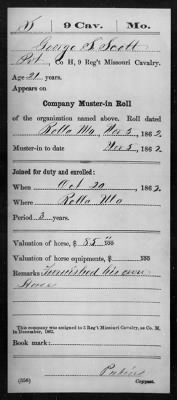 S 9 Cav. Mo.
George S. Scott
Pvt., Co H, 9 Reg't Missouri Cavalry.
Age 21 years.
Appears on
Company Muster-in Roll
of the organization named above. Roll dated
Rolla Mo, Nov 5, 1862
Muster-in to date Nov 5, 1862
Joined for duty and enrolled:
When Oct 20, 1862
Where Rolla Mo
Period 3 years.
Valuation of horse, $ 85 00/100
Valuation of horse equipments, $ /100
Remarks Furnished his own
Horse
This company was assigned to 3 Reg't Missouri Cavalry, as Co. M.
in December, 1862.
Book mark:
(356) Copyist.